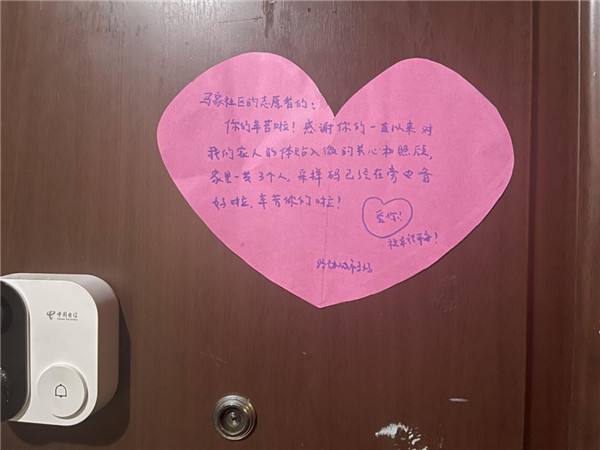 马家社区的志愿者们:
你们辛苦啦！感谢你们一直以来对
我们家人的体贴入微的关心和照顾,
家里一共3个人,采样码已经在旁边准备
好啦,辛苦你们啦！
爱你！
中国电信